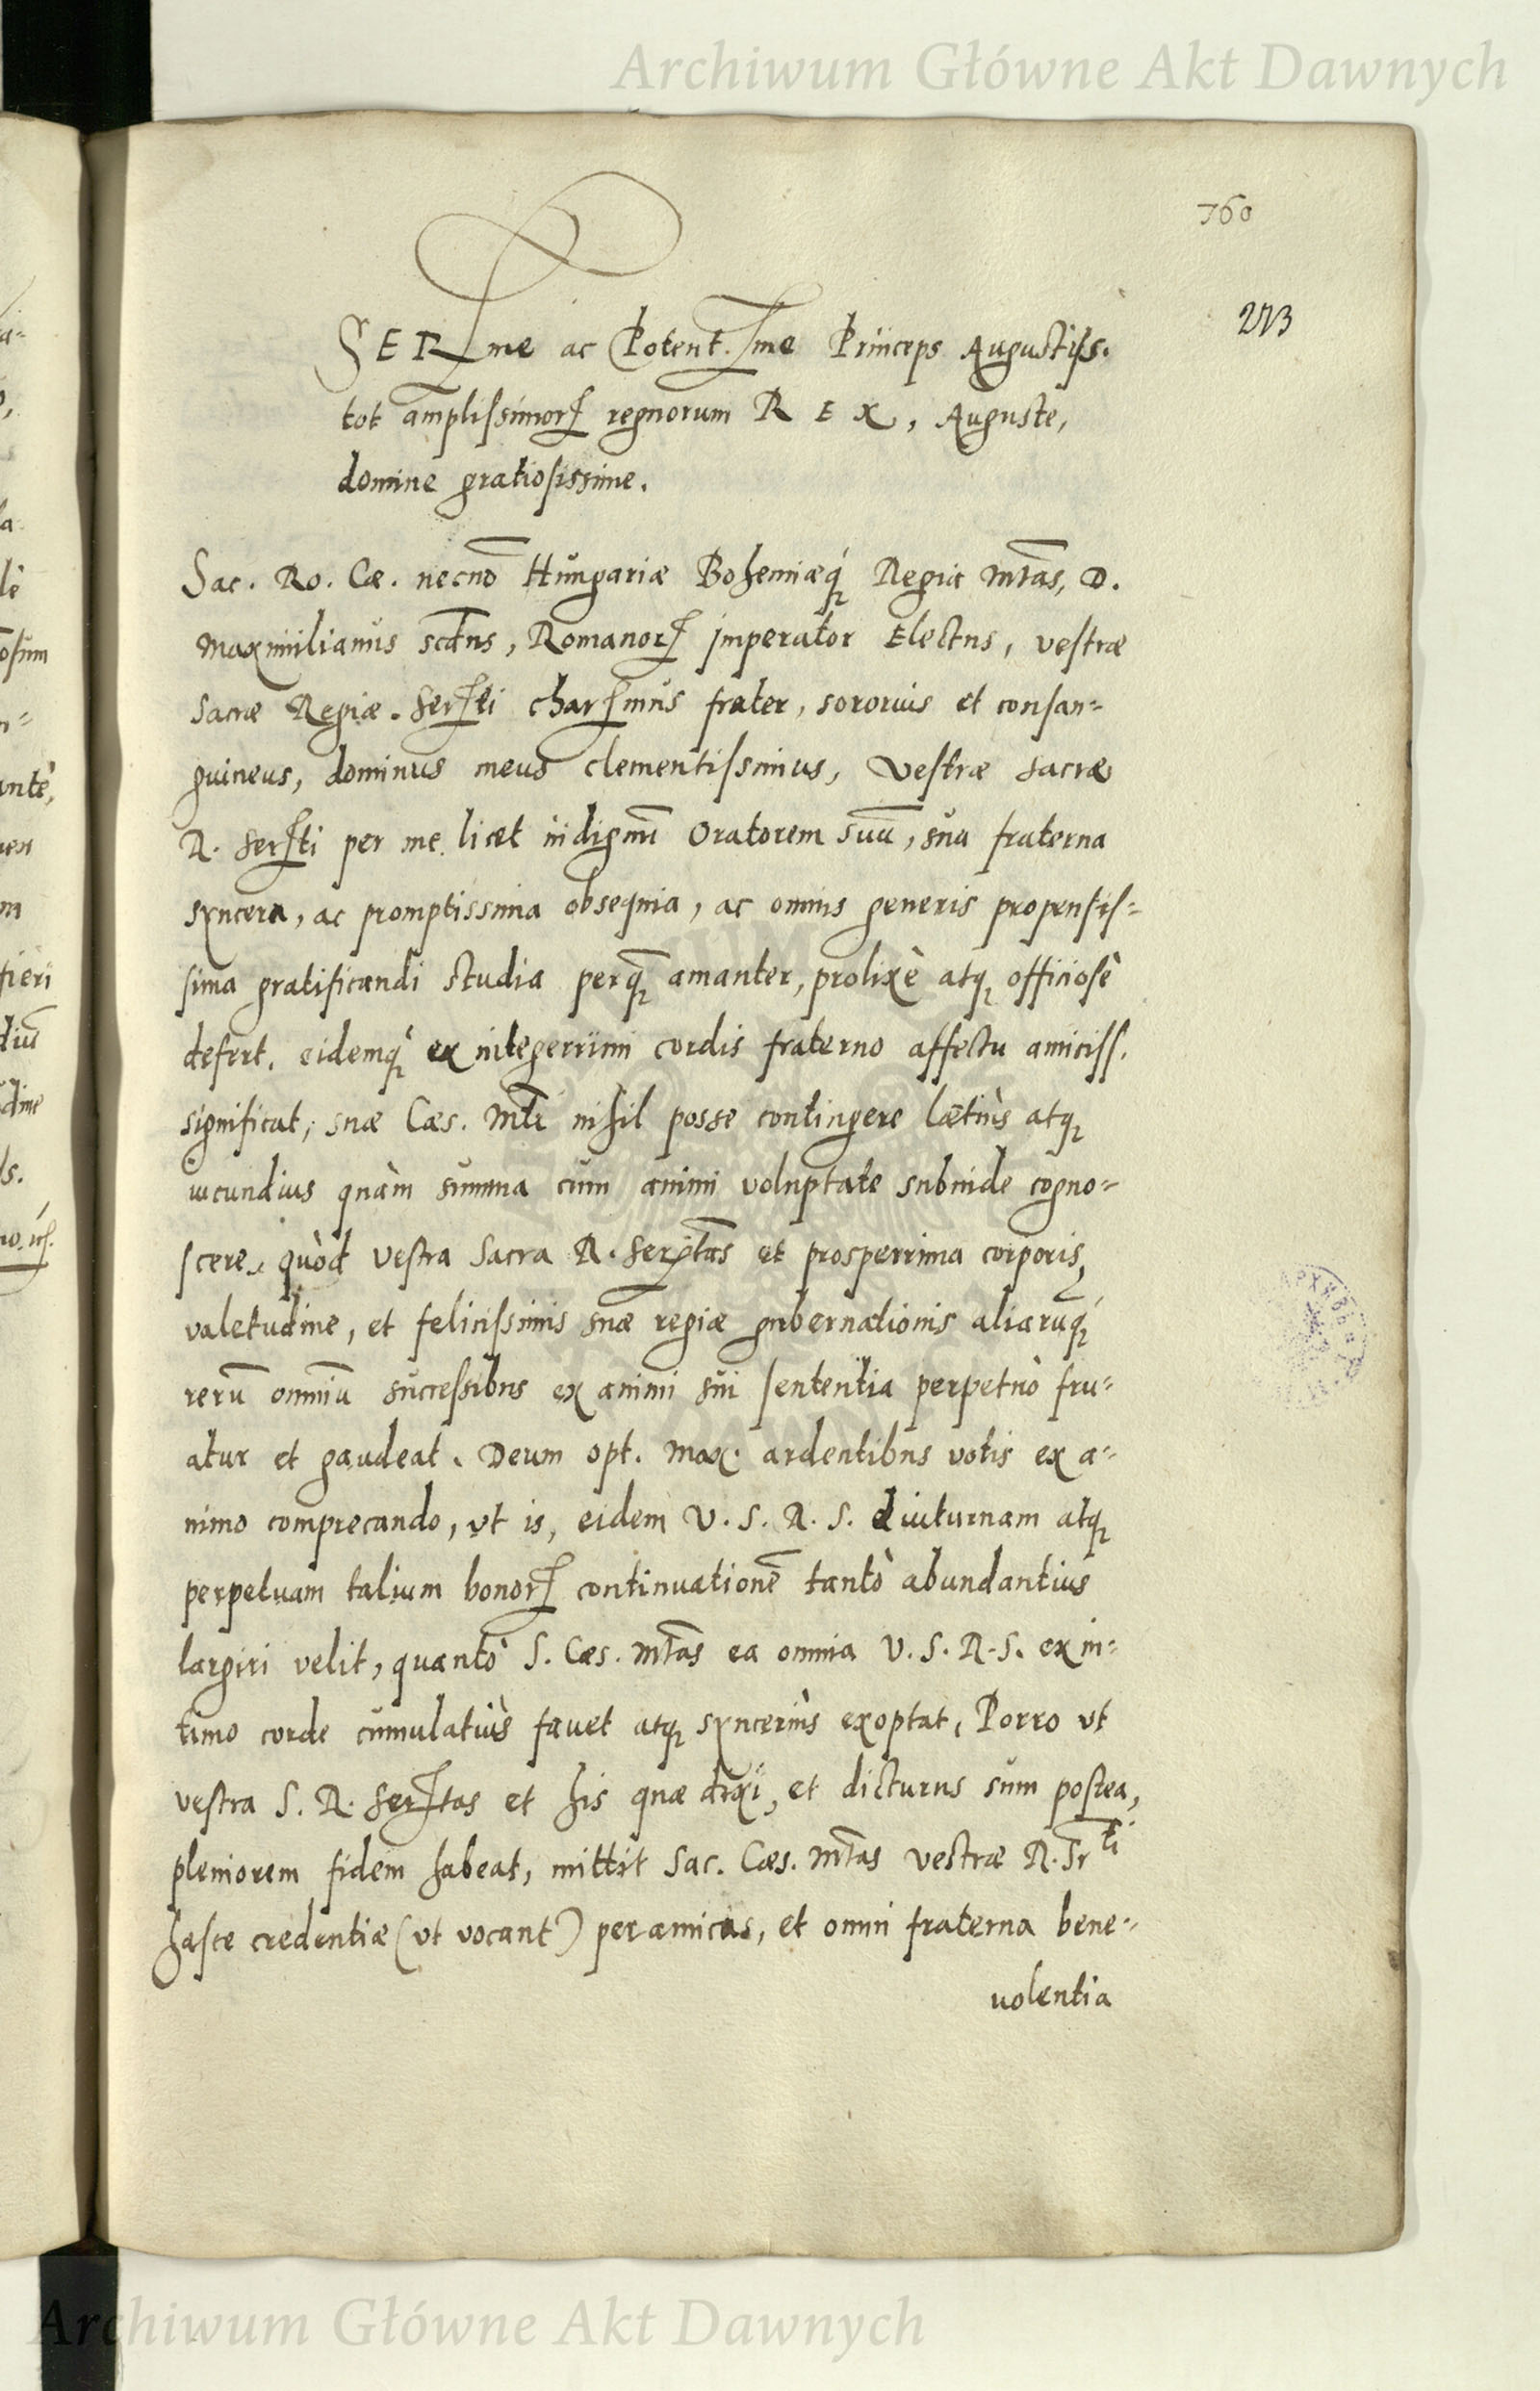 Archiwum Główne Akt Dawnych
760
273
SERme ac Potent.me Princeps Augustiss.
tot amplissimorꝝ regnorum REX, Auguste,
domine gratiosissime.
Sac. Ro. Cæ. necnō Hungariæ Bohemiæq́ꝫ Regia Mtas, D.
Maximilianus scdus, Romanorꝝ imperator Electus, vestræ
Sacræ Regiæ. Serti charmus frater, sororius et consan=
guineus, dominus meus clementissimus, Vestræ sacræ
R. Serti per me licet indignū Oratorem suū, sua fraterna
syncera, ac promptissima obsequia, ac omnis generis propensis=
sima gratificandi studia perqꝫ amanter, prolixè atqꝫ officiosè
defert. eidemq́ꝫ ex integerrimi cordis fraterno affectu amiciss.
significat, suæ Cæs. Mti nihil posse contingere lætiùs atqꝫ
iucundius quàm summa cum animi voluptate subinde cogno=
scere, quòd vestra Sacra R. Sertas et prosperrima corporis,
valetudine, et felicissimis suæ regiæ gubernationis aliarūq́ꝫ
rerū omniū successibus ex animi sui sententia perpetuò fru=
atur et gaudeat. Deum opt. Max. ardentibus votis ex a=
nimo comprecando, vt is, eidem V. S. R. S. diuturnam atqꝫ
perpetuam talium bonorꝝ continuationē tantò abundantius
largiri velit, quantò S. Cæs. Mtas ea omnia V. S. R. S. ex in=
timo corde cumulatiùs fauet atqꝫ synceriùs exoptat. Porro vt
vestra S. R. Sertas et his quæ dixi, et dicturus sum postea,
pleniorem fidem habeat, mittit Sac. Cæs. Mtas vestræ R. Srti
hasce credentiæ (vt vocant) peramicas, et omni fraterna bene=
uolentia
Archiwum Główne Akt Dawnych